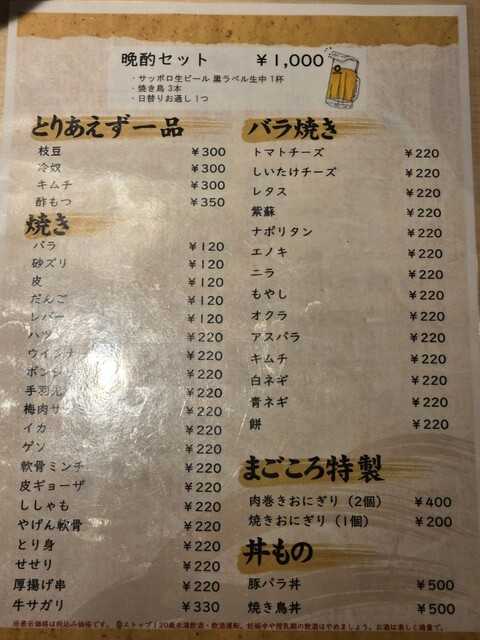 晩酌セット ¥1,000
・サッポロ生ビール 黒ラベル生中 1杯
・焼き鳥 3本
・日替りお通し 1つ
とりあえず一品
枝豆 ¥300
冷奴 ¥300
キムチ ¥300
酢もつ ¥350
焼き
バラ ¥120
砂ズリ ¥120
皮 ¥120
だんご ¥120
レバー ¥120
ハツ ¥220
ウインナー ¥220
ボンジリ ¥220
手羽先 ¥220
梅肉ササミ ¥220
イカ ¥220
ゲソ ¥220
軟骨ミンチ ¥220
皮ギョーザ ¥220
ししゃも ¥220
やげん軟骨 ¥220
とり身 ¥220
せせり ¥220
厚揚げ串 ¥220
牛サガリ ¥330
バラ焼き
トマトチーズ ¥220
しいたけチーズ ¥220
レタス ¥220
紫蘇 ¥220
ナポリタン ¥220
エノキ ¥220
ニラ ¥220
もやし ¥220
オクラ ¥220
アスパラ ¥220
キムチ ¥220
白ネギ ¥220
青ネギ ¥220
餅 ¥220
まごころ特製
肉巻きおにぎり（2個） ¥400
焼きおにぎり（1個） ¥200
丼もの
豚バラ丼 ¥500
焼き鳥丼 ¥500
※表示価格は税込み価格です。 ストップ！20歳未満飲酒・飲酒運転。妊娠中や授乳期の飲酒はやめましょう。お酒は楽しく適量で。